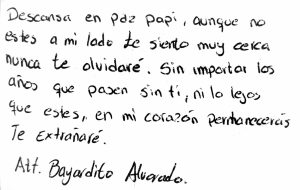 Descansa en paz papi, aunque no
estes a mi lado te siento muy cerca
nunca te olvidaré. Sin importar los
años que pasen sin ti, ni lo lejos
que estes, en mi corazón permanecerás
Te Extrañaré.
Att. Bayardito Alvarado.